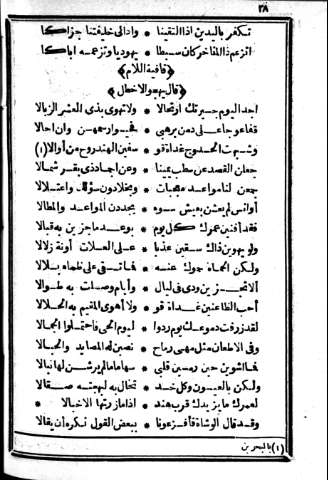 ٢٨
تكفر باليدين اذا التقينا * وادالى خليفتنا جزاكا
اتزعم ذا المفاخر كان سبطا * يهوديا وتزعمه اباكا
﴿قافية اللام﴾
﴿قال يهجو الاخطل﴾
اجد اليوم جيرتك ارتحالا * ولا تهوى بذى العشر الزيالا
قفا عوجا على دمن برهبى * فحيوا رسمهن وان احالا
وشبهت الحدوج غداة قو * سفين الهند روح من أوالا (١)
جعلن القصد عن شطب يمينا * وعن اجماد ذى بقر شمالا
جمعن لنا مواعد معجبات * وبخلا دون سؤلك واعتلالا
أوانس لم يعشن بعيش سوء * يجددن المواعد والمطالا
فقد أفنين عمرك كل يوم * بوعد ما جزين به قبالا
ولو يهوين ذاك سقين عذبا * على العلات آونة زلالا
ولكن الحماة حموك عنه * فما تسقى على ظماء بلالا
الا تجزين ودى فى ليال * وأيام وصلت به طوالا
أحب الظاعنين غداة قو * ولا أهوى المقيم به الحلالا
لقد ذرفت دموعك يوم ردوا * ليوم الحى فاحتملوا الجمالا
وفى الاظعان مثل مهى رماح * نصبن له المصايد والحبالا
فما اشوين حين رمين قلبى * سهاما لم يرشن لها نبالا
ولكن بالعيون وكل خد * تخال به لبهجته صقالا
لعمرك ما يزيدك قرب هند * اذا ما زرتها الا خبالا
وقد قال الوشاة فأفزعونا * ببعض القول نكره أن يقالا
(١) بالبحرين